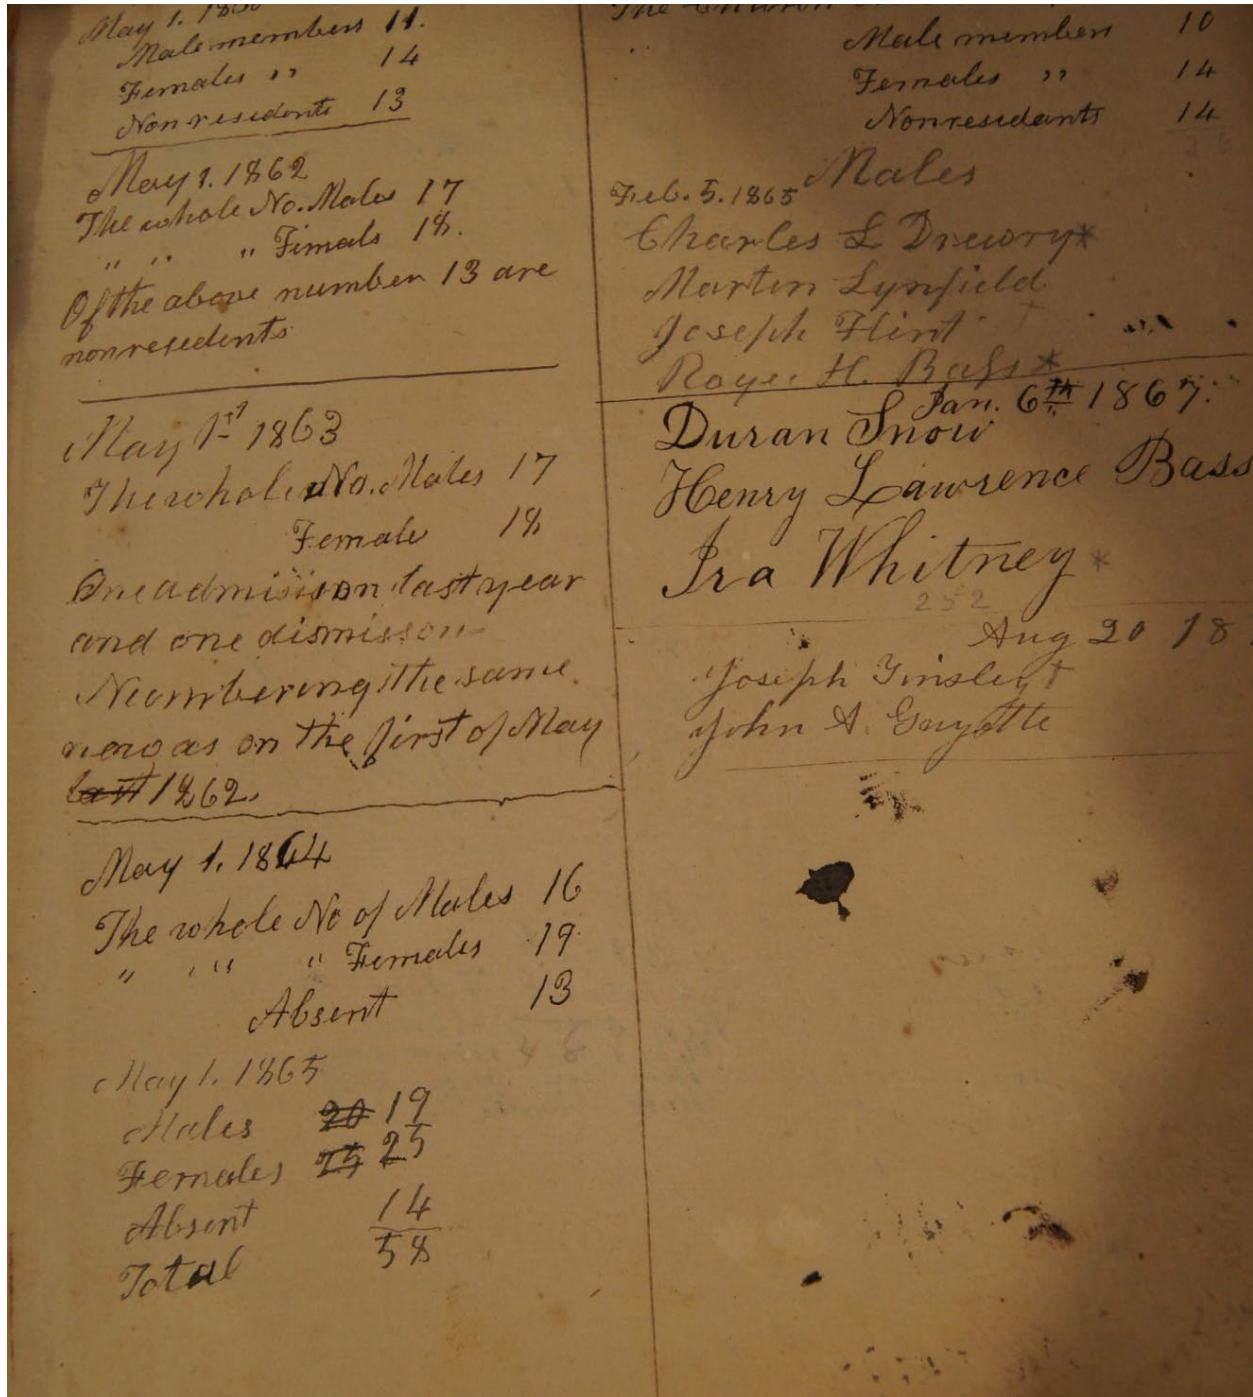 May 1. 18
Male members 11.
Females ,, 14
Nonresidents 13
May 1. 1862
The whole No. Males 17
" " " Fimals 18.
Of the above number 13 are
nonresedents
May 1st 1863
The whole No. Males 17
Female 18
One admission last year
and one dismisson
Numbering the same
as on the first of May
last 1862.
May 1. 1864
The whole No of Males 16
" " " Females 19
Absent 13
May 1. 1865
Males 20 19
Females 25
Absent 14
Total 58
The Church
Male members 10
Females ,, 14
Nonresedants 14
Males
Feb. 5. 1865
Charles L Drewry*
Martin Lynfield
Joseph Flint
Roger H. Bass *
Jan. 6th 1867.
Duran Snow
Henry Lawrence Bass
Ira Whitney *
252
Aug 20 18
Joseph Tinsley †
John A. Guyette